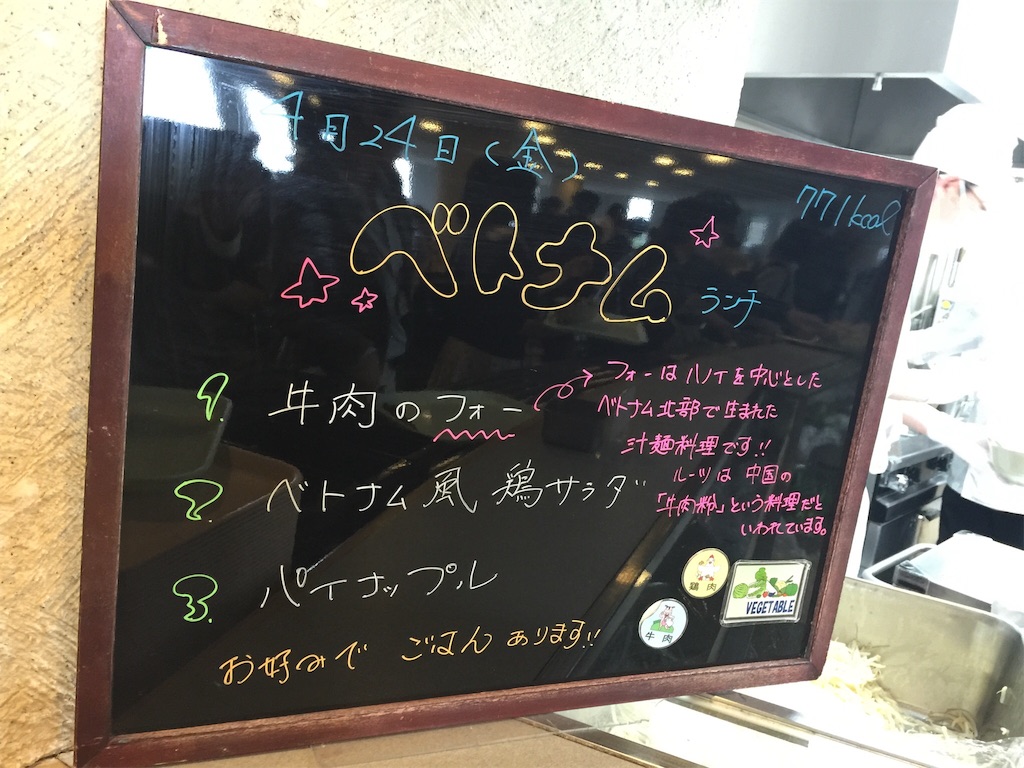 4月24日(金)
771kcal
ベトナム
ランチ
1. 牛肉のフォー
フォーはハノイを中心とした
ベトナム北部で生まれた
汁麺料理です!!
ルーツは中国の
「牛肉粉」という料理だと
いわれています。
2. ベトナム風鶏サラダ
3. パイナップル
お好みで ごはん あります!!
鶏肉
牛肉
VEGETABLE